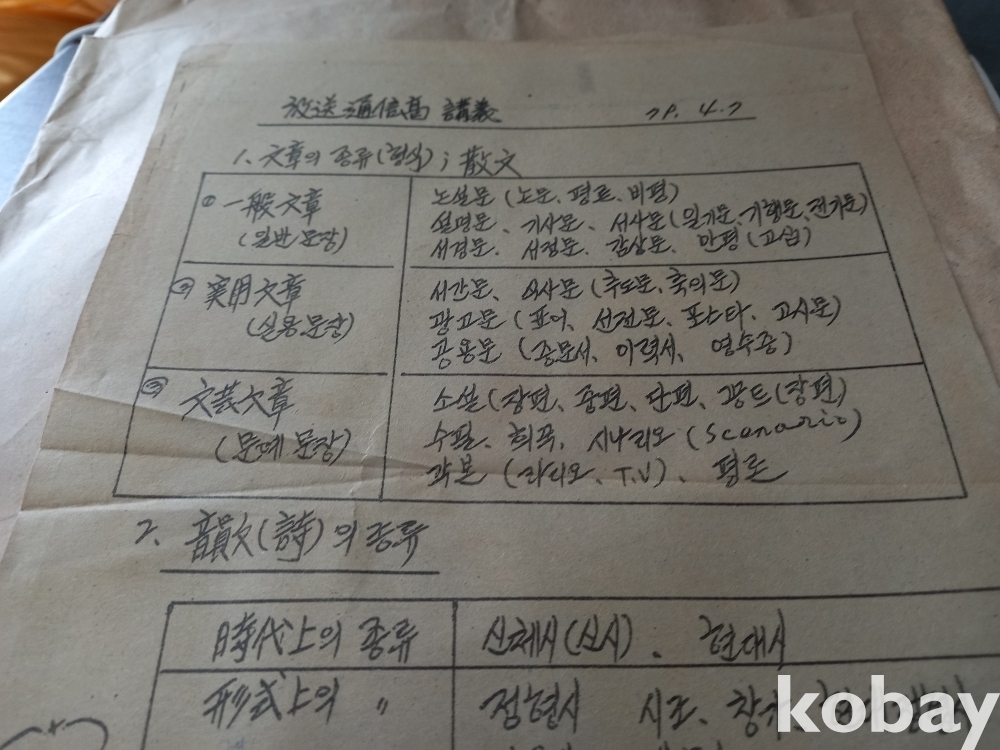 放送通信高 講義 79. 4. 7
1. 文章의 종류(형식) ; 散文
① 一般文章
(일반 문장)
논설문 (논문、평론、비평)
설명문、기사문、서사문(일기문、기행문、전기문)
서경문、서정문、감상문、만평(고십)
② 実用文章
(실용문장)
서간문、식사문(추도문、축의문)
광고문 (표어、선전문、포스타、고시문)
공용문 (공문서、이력서、영수증)
③ 文芸文章
(문예 문장)
소설(장편、중편、단편、꽁트(장편)
수필、희곡、시나리오(Scenario)
각본 (라디오、T.V)、평론
2. 音韻文(詩)의 종류
時代上의 종류
신체시(신시)、현대시
形式上의 〃
정형시 시조、창
kobay